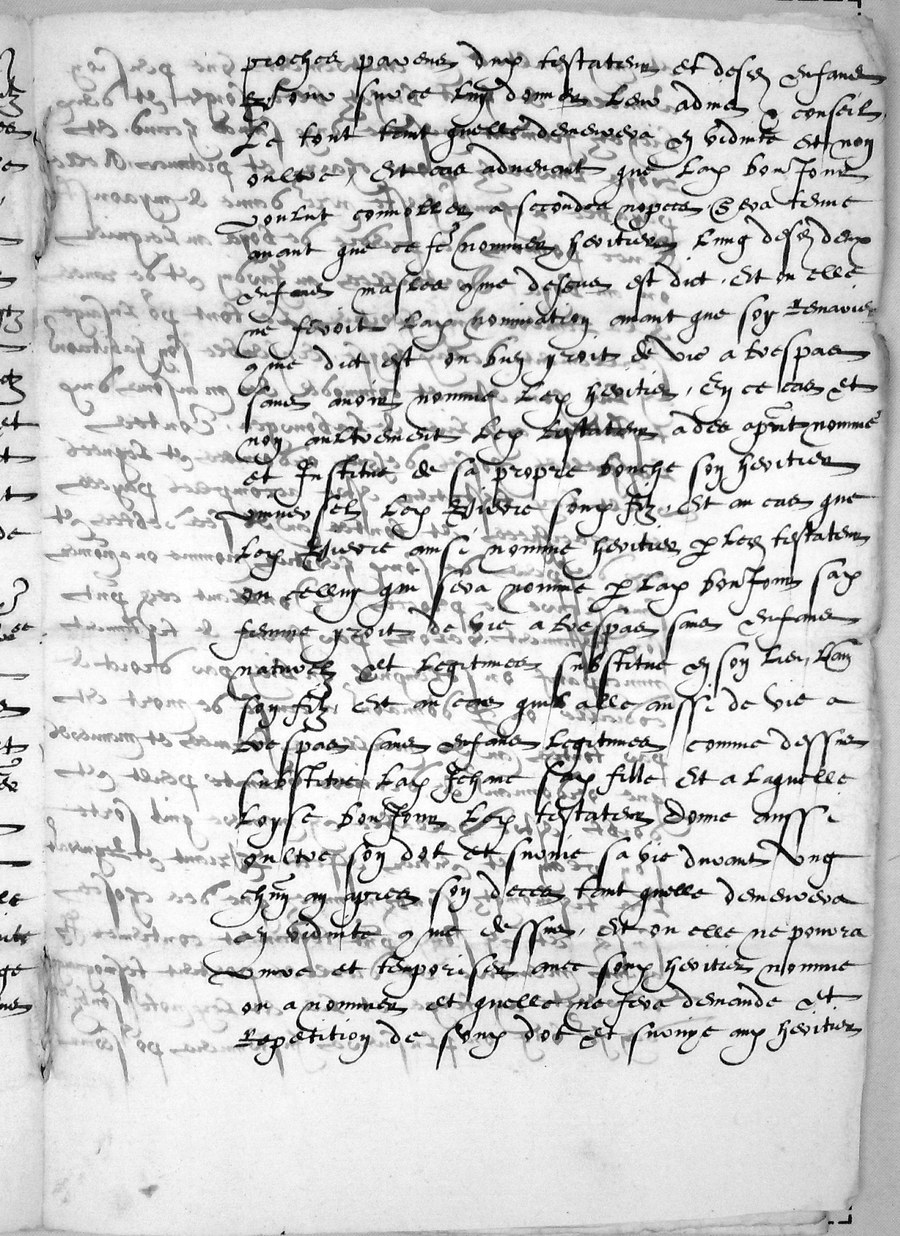 proches parens dud testateur et desd enfans
sur ce luy donner leur advis & conseil
Le tout tant quelle demeurera en viduité et non
oultre, Et cas advenant que lad bonjour
voulut convoller a secondes nopces sera tenue
avant que ce f nommer heritier lung desd deux
enfans masles come dessus est dit, Et ou elle
ne feroit lad nomination avant que soy remarier
come dit est ou bien yroit de vie a trespas
sans avoir nommé led heritier, En ce cas et
non aultrement led testateur a des apnt nommé
et Institué de sa propre bouche son heritier
universel led Pierre sond filz, Et au cas que
led Pierre ainsi nommé heritier p led testateur
ou celluy qui sera nommé p lad bonjour sad
femme yroit de vie a trespas sans enfans
naturelz et legitimes substitue en son lieu
son filz, Et au cas quil alle aussi de vie a
trespas sans enfans legitimes comme dessus
substitue lad Jehane sad fille Et a laquelle
Loyse bonjour led testateur donne aussi
oultre son dot et survie sa vie durant ung
chun an apres son deces tant quelle demeurera
en viduité come dessus, Et ou elle ne pourra
vivre et temporiser avec sond heritier nommé
ou a nommer et quelle ne fera demande et
Repetition de sond dot et survie aud heritier